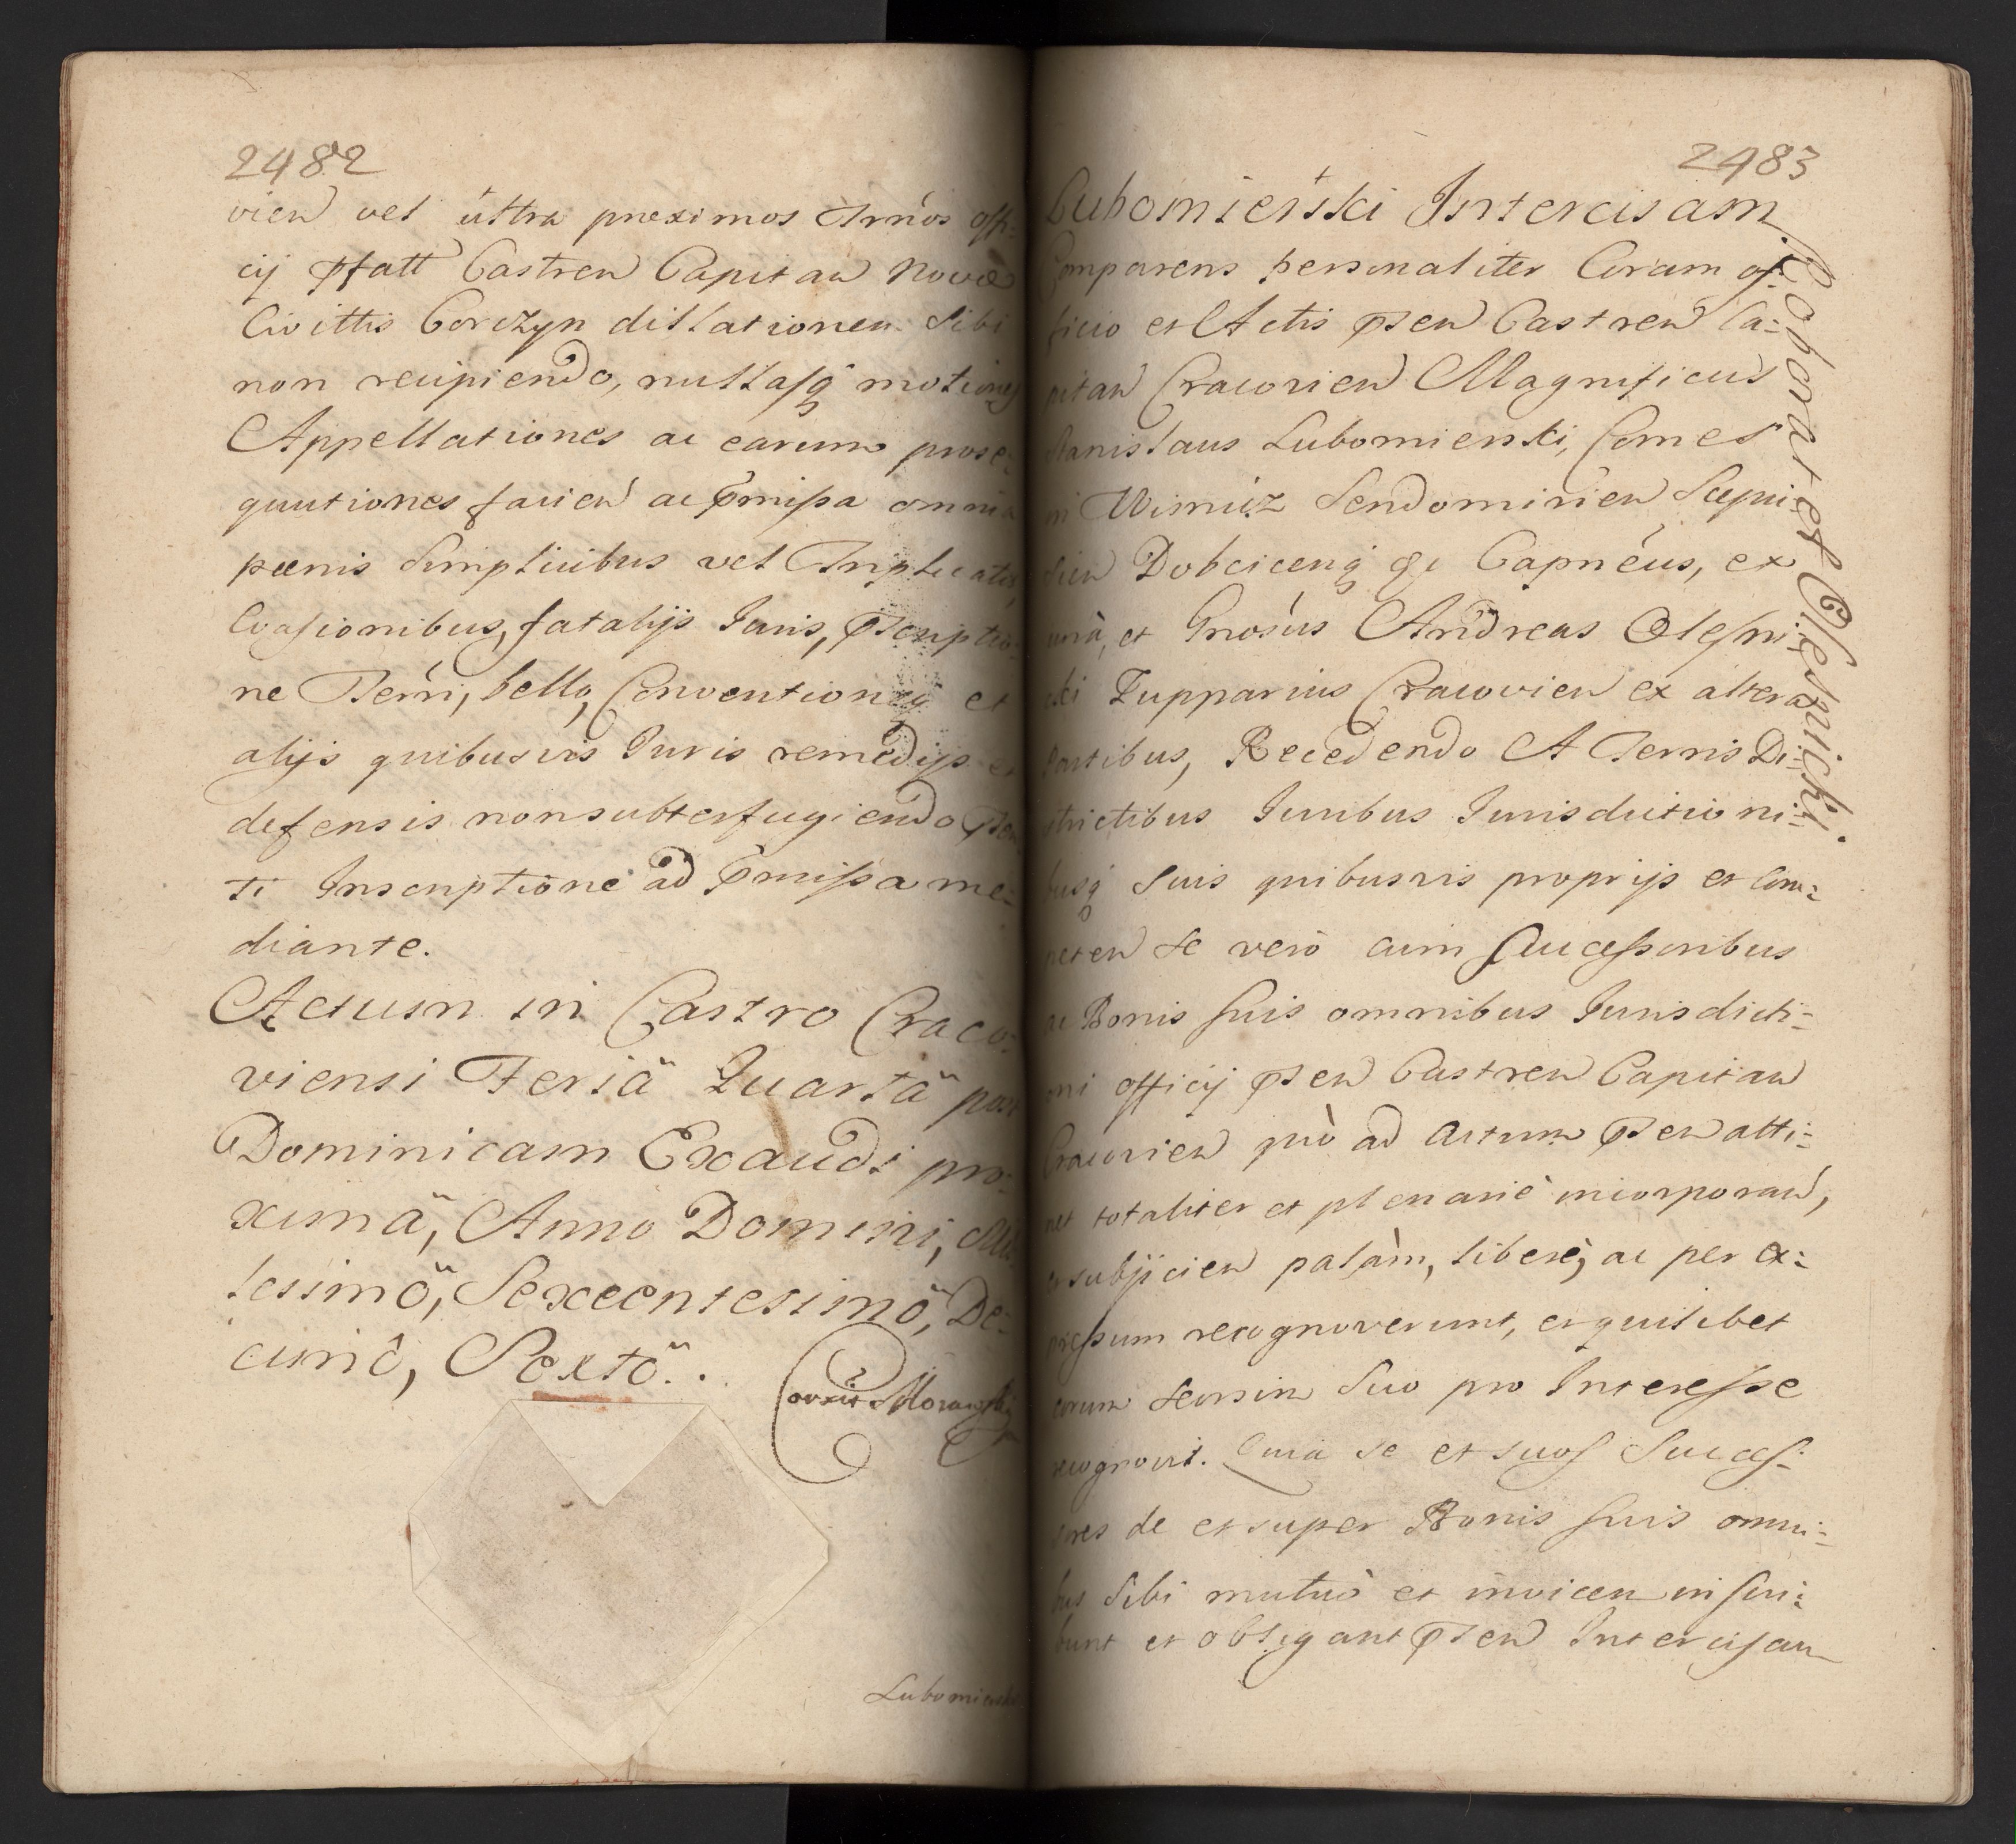 2482
vien vel ultra proximos Trnos offi:
cij Pfatt Castren Capitan Novae
Civittis Corczyn dillationem Sibi
non recipiendo, nullasq motiones
Appellationes ac earum prose:
quutiones facien ac Pmissa omnia
paenis Simplicibus vel Triplicatis,
Evasionibus, fatalijs Iuris, Pscriptio:
ne Terri, bello, Conventioneq et
alijs quibusvis Iuris remedijs et
defensis non subterfugiendo Psen
ti Inscriptione ad Pmissa me:
diante.
Actum in Castro Craco:
viensi Feria Quarta post
Dominicam Exaudi pro:
xima, Anno Domini, Mil
lesimo, Sexcentesimo, De:
cimo, Sexto.
Correxit Morawsky
Lubomierski
2483
Lubomierski Intercisam
Roborat et Olesnicki.
Comparens personaliter Coram of:
ficio et Actis Psen Castren Ca:
pitan Cracovien Magnificus
Stanislaus Lubomierski, Comes
in Wisnicz Sendomirien Scepu:
sien Dobcicenq &c Capneus, ex
una, et Gnosus Andreas Olesni:
cki Zupparius Cracovien ex altera
Partibus, Recedendo A Terris Di:
strictibus Iuribus Iurisdictioni:
busq Suis quibusvis proprijs et Com:
peten Se vero cum Successoribus
ac Bonis suis omnibus Iurisdicti:
oni officij Psen Castren Capitan
Cracovien quo ad Actum Psen atti:
net totaliter et plenarie incorporan,
et subijcien palam, libere, ac per ex:
pressum recognoverunt, et quilibet
eorum seorsim Suo pro Interesse
recognovit. Quia se et suos Succes:
sores de et super Bonis suis omni:
bus Sibi mutuo et invicem inscri:
bunt et obligant Psen Intercisam